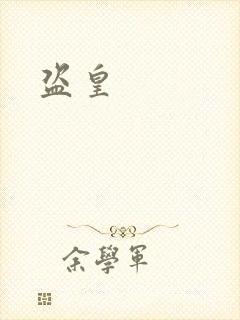 盗皇
余學軍